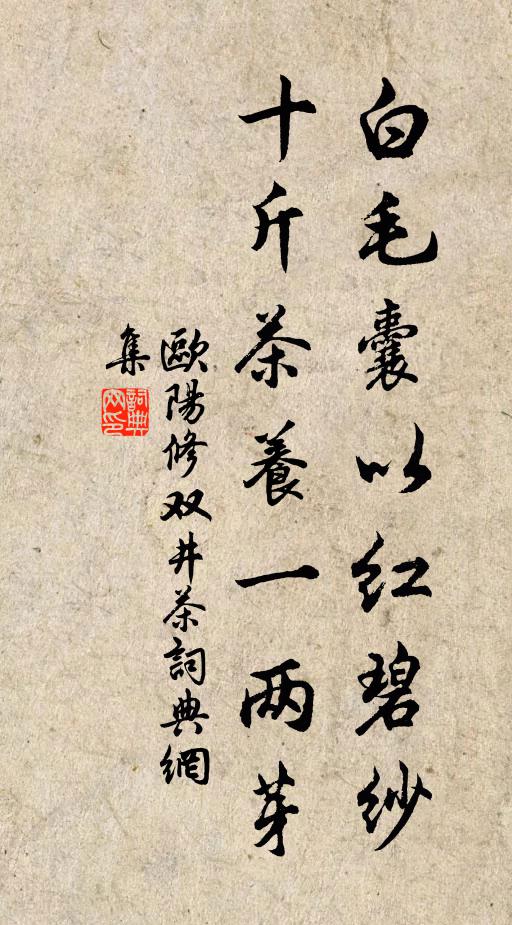 白毛囊以紅碧紗
十斤茶養一两芽
歐陽修双井茶詞典網
集
詞典網印